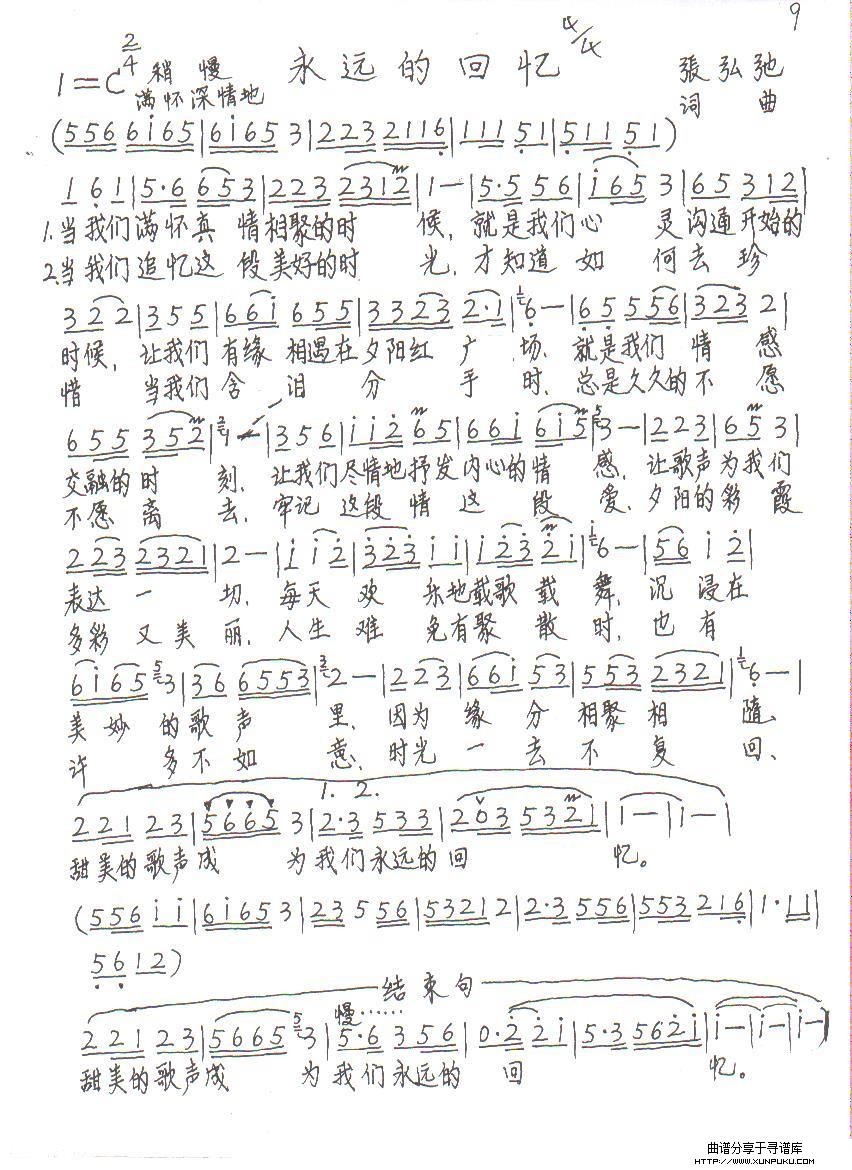 9
1=C 2/4 稍慢 永远的回忆 4/4 張弘弛
满怀深情地 词 曲
(556 6i65|6i65 3|223 2116|111 51|511 51)
1 6 1|5·6 653|223 2312|1—|5·5 56|i65 3|65 312|
1.当我们满怀真 情相聚的时 候,就是我们心 灵沟通开始的
2.当我们追忆这 段美好的时 光,才知道如 何去珍
3 2 2|3 5 5|66i 655|3323 2·1|6—|65 556|323 2|
时候,让我们有缘相遇在夕阳红广场.就是我们 情 感
惜 当我们含 泪 分 手 时,总是久久的不 愿
655 352|1—|356|ii2 65|66i 6i5|3—|223|65 3|
交融的时 刻.让我们尽情地抒发内心的情 感,让歌声为我们
不愿离 去,牢记 这段情这 段 爱,夕阳的彩霞
223 2321|2—|i i2|323 ii|i23 2i|6—|56 i 2|
表达一 切,每天 欢 乐地载歌载 舞,沉 浸在
多彩又美 丽,人生 难 免有聚 散 时,也有
6i65 3|36 6553|2—|223|66i 53|553 2321|6—|
美妙的歌声 里,因为 缘 分 相聚相 随、
许 多不如 意,时光 一 去 不 复 回、
1. 2.
221 23|5665 3|2·3 533|203 5321|i—|i—|
甜美的歌声成 为我们永远的回 忆。
(556 ii|6i65 3|23 5 56|5321 2|2·3 556|553 216|1·11|
56 12)
结束句
慢······
221 23|5665 3|5·6 356|0·2 2i|5·3 562i|i—|i—|i—|
甜美的歌声成 为我们永远的 回 忆。
曲谱分享于寻谱库
WWW.XUNPUKU.COM